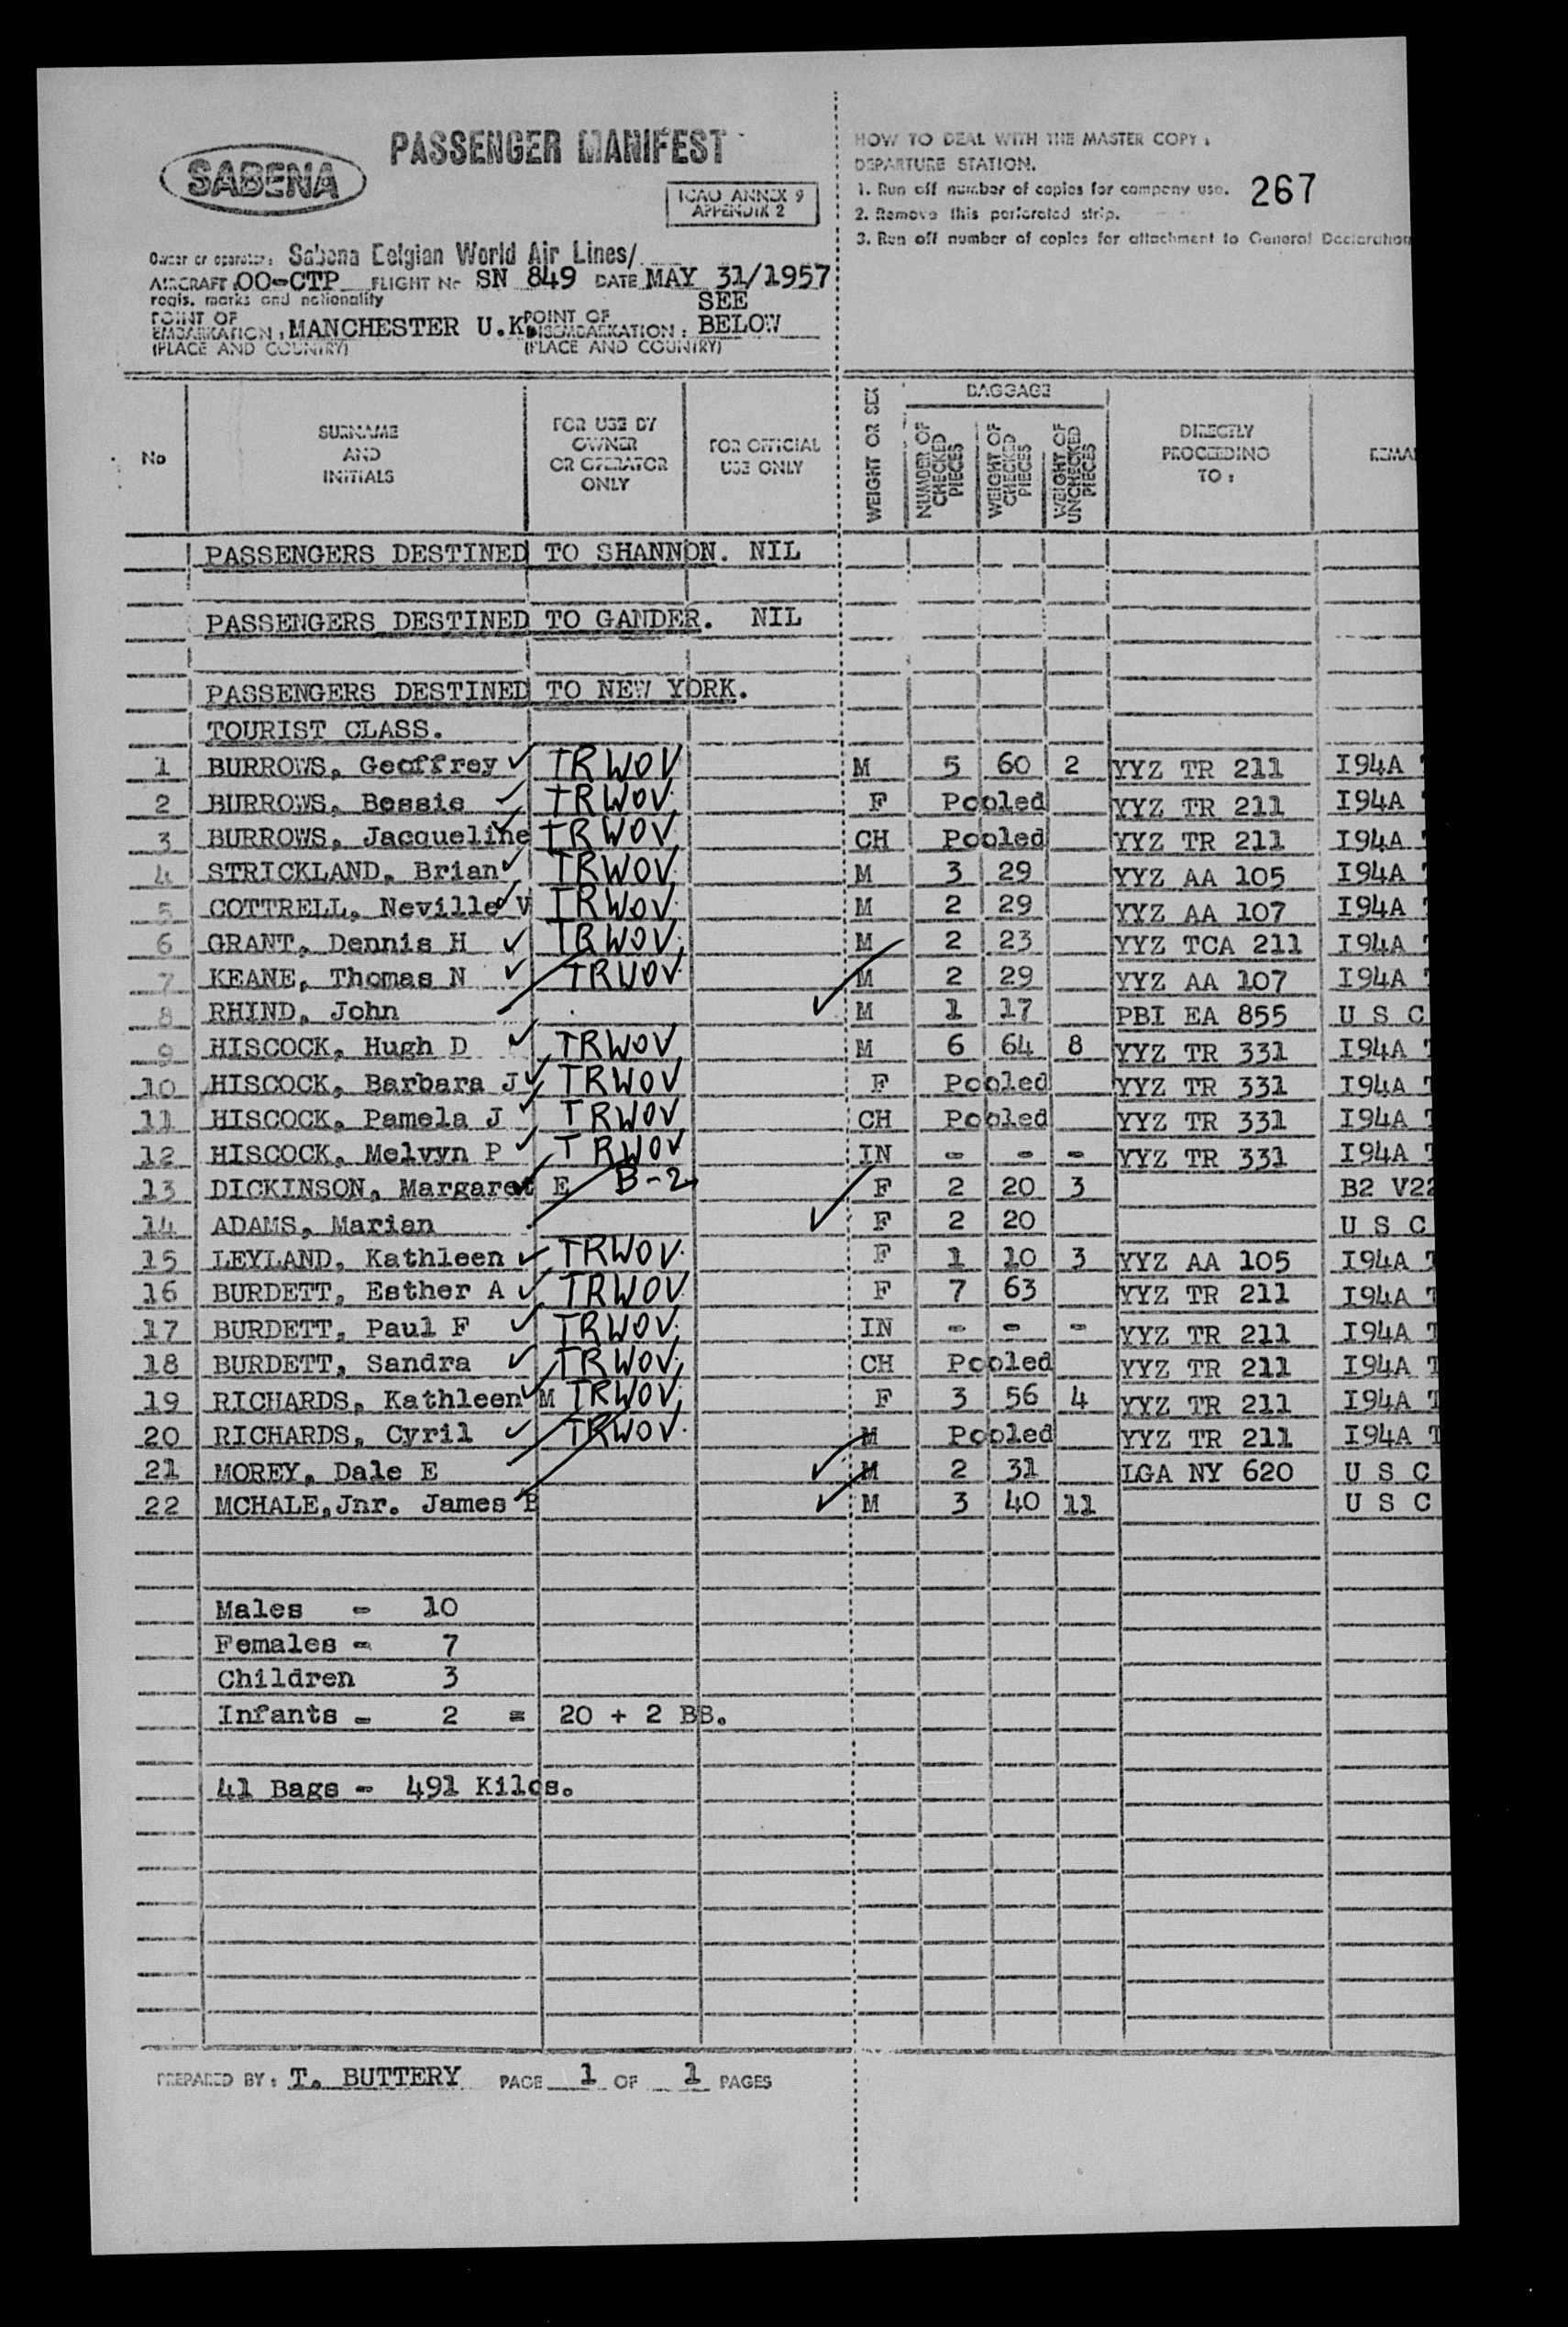 PASSENGER MANIFEST
SABENA
ICAO ANNEX 9
APPENDIX 2
Owner or operator: Sabena Belgian World Air Lines/
AIRCRAFT OO-CTP FLIGHT Nr SN 849 DATE MAY 31/1957
regis. marks and nationality
SEE
POINT OF EMBARKATION: MANCHESTER U.K. POINT OF DISEMBARKATION: BELOW
(PLACE AND COUNTRY) (PLACE AND COUNTRY)
HOW TO DEAL WITH THE MASTER COPY:
DEPARTURE STATION.
1. Run off number of copies for company use. 267
2. Remove this perforated strip.
3. Run off number of copies for attachment to General Declaration
No
SURNAME AND INITIALS
FOR USE BY OWNER OR OPERATOR ONLY
FOR OFFICIAL USE ONLY
WEIGHT OR SEX
BAGGAGE
NUMBER OF CHECKED PIECES
WEIGHT OF CHECKED PIECES
WEIGHT OF UNCHECKED PIECES
DIRECTLY PROCEEDING TO:
REMA
PASSENGERS DESTINED TO SHANNON. NIL
PASSENGERS DESTINED TO GANDER. NIL
PASSENGERS DESTINED TO NEW YORK.
TOURIST CLASS.
1 BURROWS, Geoffrey TRWOV M 5 60 2 YYZ TR 211 I94A T
2 BURROWS, Bessie TRWOV F Pooled YYZ TR 211 I94A
3 BURROWS, Jacqueline TRWOV CH Pooled YYZ TR 211 I94A
4 STRICKLAND, Brian TRWOV M 3 29 YYZ AA 105 I94A
5 COTTRELL, Neville V TRWOV M 2 29 YYZ AA 107 I94A T
6 GRANT, Dennis H TRWOV M 2 23 YYZ TCA 211 I94A T
7 KEANE, Thomas N TRWOV M 2 29 YYZ AA 107 I94A T
8 RHIND, John M 1 17 PBI EA 855 U S C
9 HISCOCK, Hugh D TRWOV M 6 64 8 YYZ TR 331 I94A T
10 HISCOCK, Barbara J TRWOV F Pooled YYZ TR 331 I94A T
11 HISCOCK, Pamela J TRWOV CH Pooled YYZ TR 331 I94A T
12 HISCOCK, Melvyn P TRWOV IN - - - YYZ TR 331 I94A T
13 DICKINSON, Margaret E B-2 F 2 20 3 B2 V22
14 ADAMS, Marian F 2 20 U S C
15 LEYLAND, Kathleen TRWOV F 1 10 3 YYZ AA 105 I94A T
16 BURDETT, Esther A TRWOV F 7 63 YYZ TR 211 I94A T
17 BURDETT, Paul F TRWOV IN - - - YYZ TR 211 I94A T
18 BURDETT, Sandra TRWOV CH Pooled YYZ TR 211 I94A T
19 RICHARDS, Kathleen M TRWOV F 3 56 4 YYZ TR 211 I94A T
20 RICHARDS, Cyril TRWOV M Pooled YYZ TR 211 I94A T
21 MOREY, Dale E M 2 31 LGA NY 620 U S C
22 MCHALE,Jnr. James B M 3 40 11 U S C
Males - 10
Females - 7
Children 3
Infants - 2 = 20 + 2 BB.
41 Bags - 491 Kilos.
PREPARED BY: T. BUTTERY PAGE 1 OF 1 PAGES